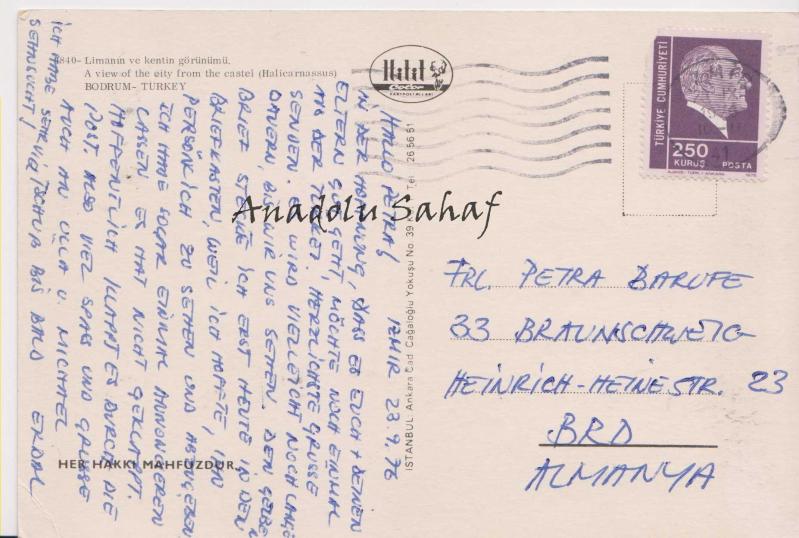 4840- Limanın ve kentin görünümü.
A view of the city from the castel (Halicarnassus)
BODRUM- TURKEY
Hitit
Color
KARTPOSTALLARI
İSTANBUL: Ankara Cad. Cağaloğlu Yokuşu No. 39 Tel: 26 56 51
HER HAKKI MAHFUZDUR
TÜRKİYE CUMHURİYETİ
250
KURUŞ POSTA
Anadolu Sahaf
IZMIR 23.9.76
HALLO PETRA!
IN DER HOFFNUNG, DASS ES EUCH + DEINEN
ELTERN GUT GEHT, MÖCHTE NOCH EINMAL
AUS DER TÜRKEI HERZLICHSTE GRÜSSE
SENDEN. ES WIRD VIELLEICHT NOCH LANGE
DAUERN, BIS WIR UNS SEHEN. DEN
BRIEF STECKTE ICH ERST HEUTE IN DEN
BRIEFKASTEN, WEIL ICH HOFFTE, IHN
PERSÖNLICH ZU SEHEN UND ABZUGEBEN
ICH HABE SOGAR EINMAL ANNONCIEREN
LASSEN ES HAT NICHT GEKLAPPT.
HOFFENTLICH KLAPPT ES DURCH DIE
POST. ALSO VIEL SPASS UND GRÜSSE
AUCH AN ULLA U. MICHAEL
ICH HABE SEHR VIEL TSCHÜß BIS BALD ERDAL
SEHNSUCHT!
FRL. PETRA BARUFE
33 BRAUNSCHWEIG
HEINRICH-HEINESTR. 23
BRD
ALMANYA